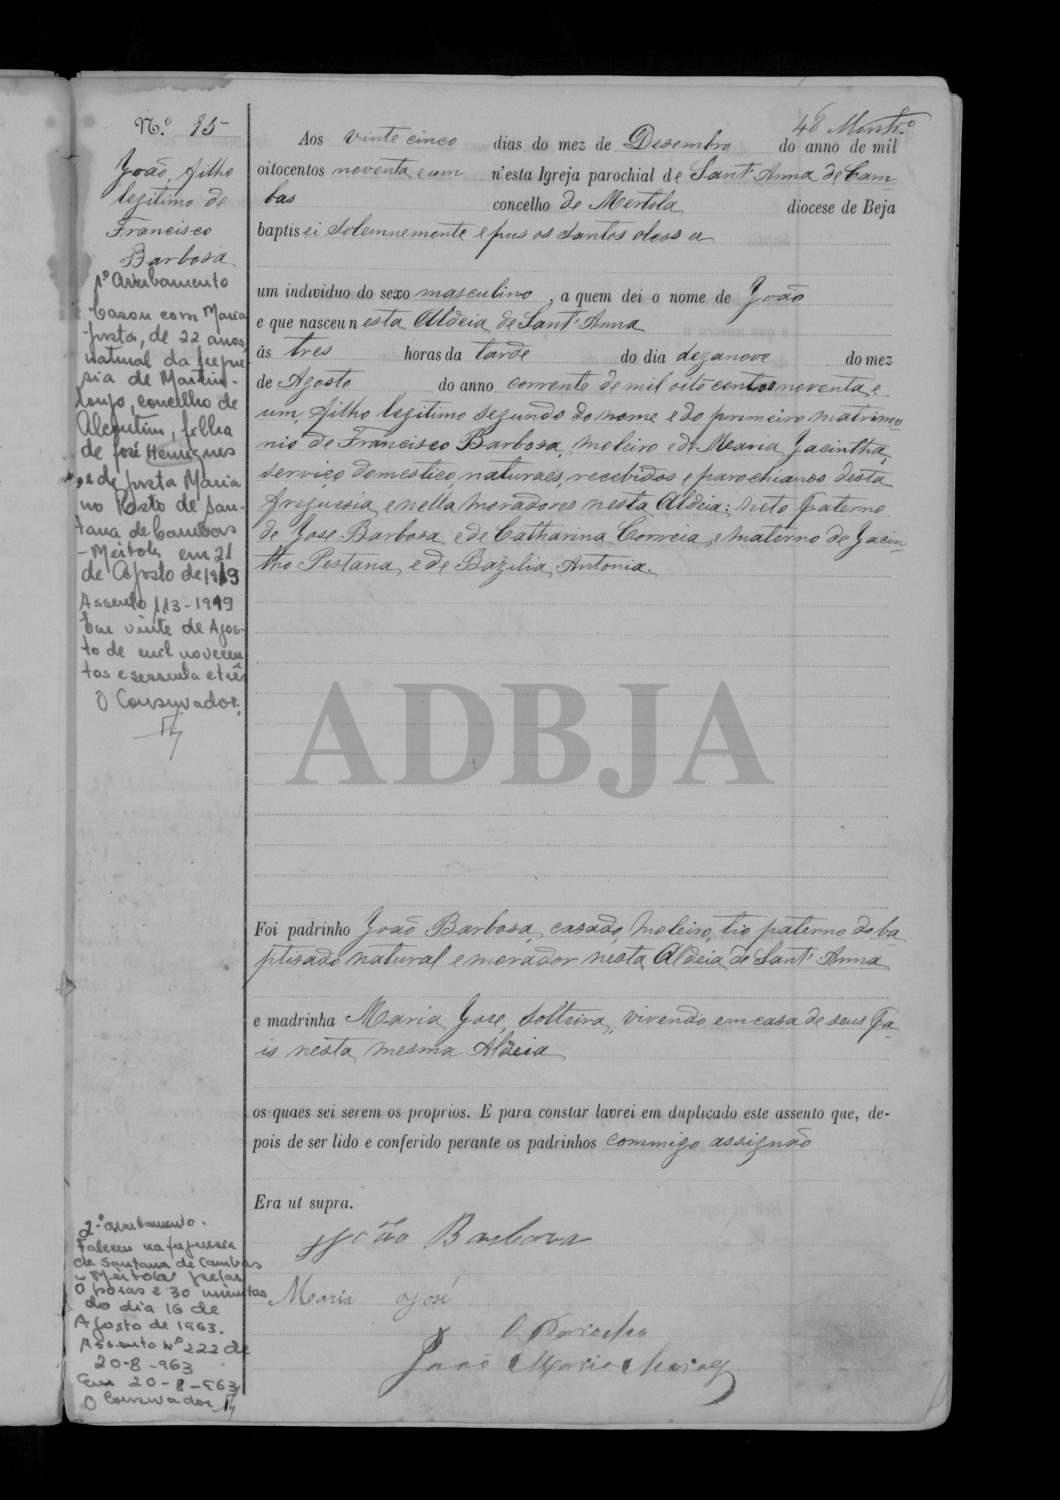 48
N.º 95
João, filho
legitimo de
Francisco
Barbosa
1º Averbamento
Casou com Maria
Justa, de 22 anos,
natural da fregue-
sia de Martim-
longo, concelho de
Alcoutim, filha
de José Henriques
e de Justa Maria
no Posto de San-
tana de Cambas
- Mértola em 21
de Agosto de 1919
Assento 113-1919
Em vinte de Agos-
to de mil novecen
tos e sessenta e três
O Conservador,
Aos vinte cinco dias do mez de Desembro do anno de mil
oitocentos noventa e um n'esta Igreja parochial de Sant'Anna de Cam
bas concelho de Mertola diocese de Beja
baptisei solemnemente e puz os santos oleos a
um individuo do sexo masculino, a quem dei o nome de João
e que nasceu nesta Aldeia de Sant'Anna
ás tres horas da tarde do dia dezanove do mez
de Agosto do anno corrente de mil oito centos noventa e
um, filho legitimo segundo do nome e do primeiro matrimo
nio de Francisco Barbosa, moleiro e de Maria Jacintha,
serviço domestico, naturaes, recebidos e parochianos desta
freguesia, e nella moradores nesta Aldeia: neto paterno
de Jose Barbosa e de Catharina Correia, e materno de Jacin-
tho Pestana, e de Bazilia Antonia.
ADBJA
Foi padrinho João Barbosa, casado, moleiro, tio paterno do ba
ptisado natural e morador nesta Aldeia de Sant'Anna
e madrinha Maria Jose, solteira, vivendo em casa de seus Pa-
is nesta mesma Aldeia
os quaes sei serem os proprios. E para constar lavrei em duplicado este assento que, de-
pois de ser lido e conferido perante os padrinhos commigo assignão
Era ut supra.
João Barbosa
Maria José
O Parocho
João Maria
2º averbamento.
Faleceu na freguesia
de Santana de Cambas
- Mértola pelas
0 horas e 30 minutos
do dia 16 de
Agosto de 1963.
Assento Nº 222 de
20-8-963
Em 20-8-963
O Conservador,